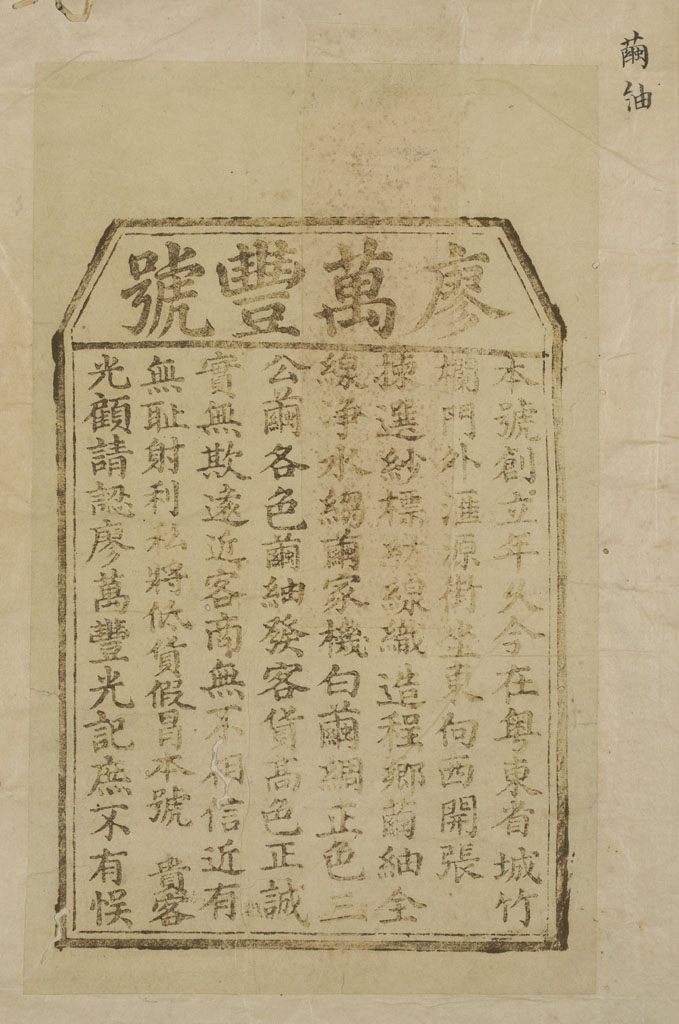 繭紬
廖萬豐號
本號創立年久今在粤東省城竹
欄門外滙源街坐東向西開張
揀選紗標紡線織造程鄉繭紬全
線浄水縐繭家機白繭綢正色三
公繭各色繭紬發客貨高色正誠
實無欺遠近客商無不相信近有
無耻射利私將低貨假冒本號 貴客
光顧請認廖萬豐光記庶不有悮